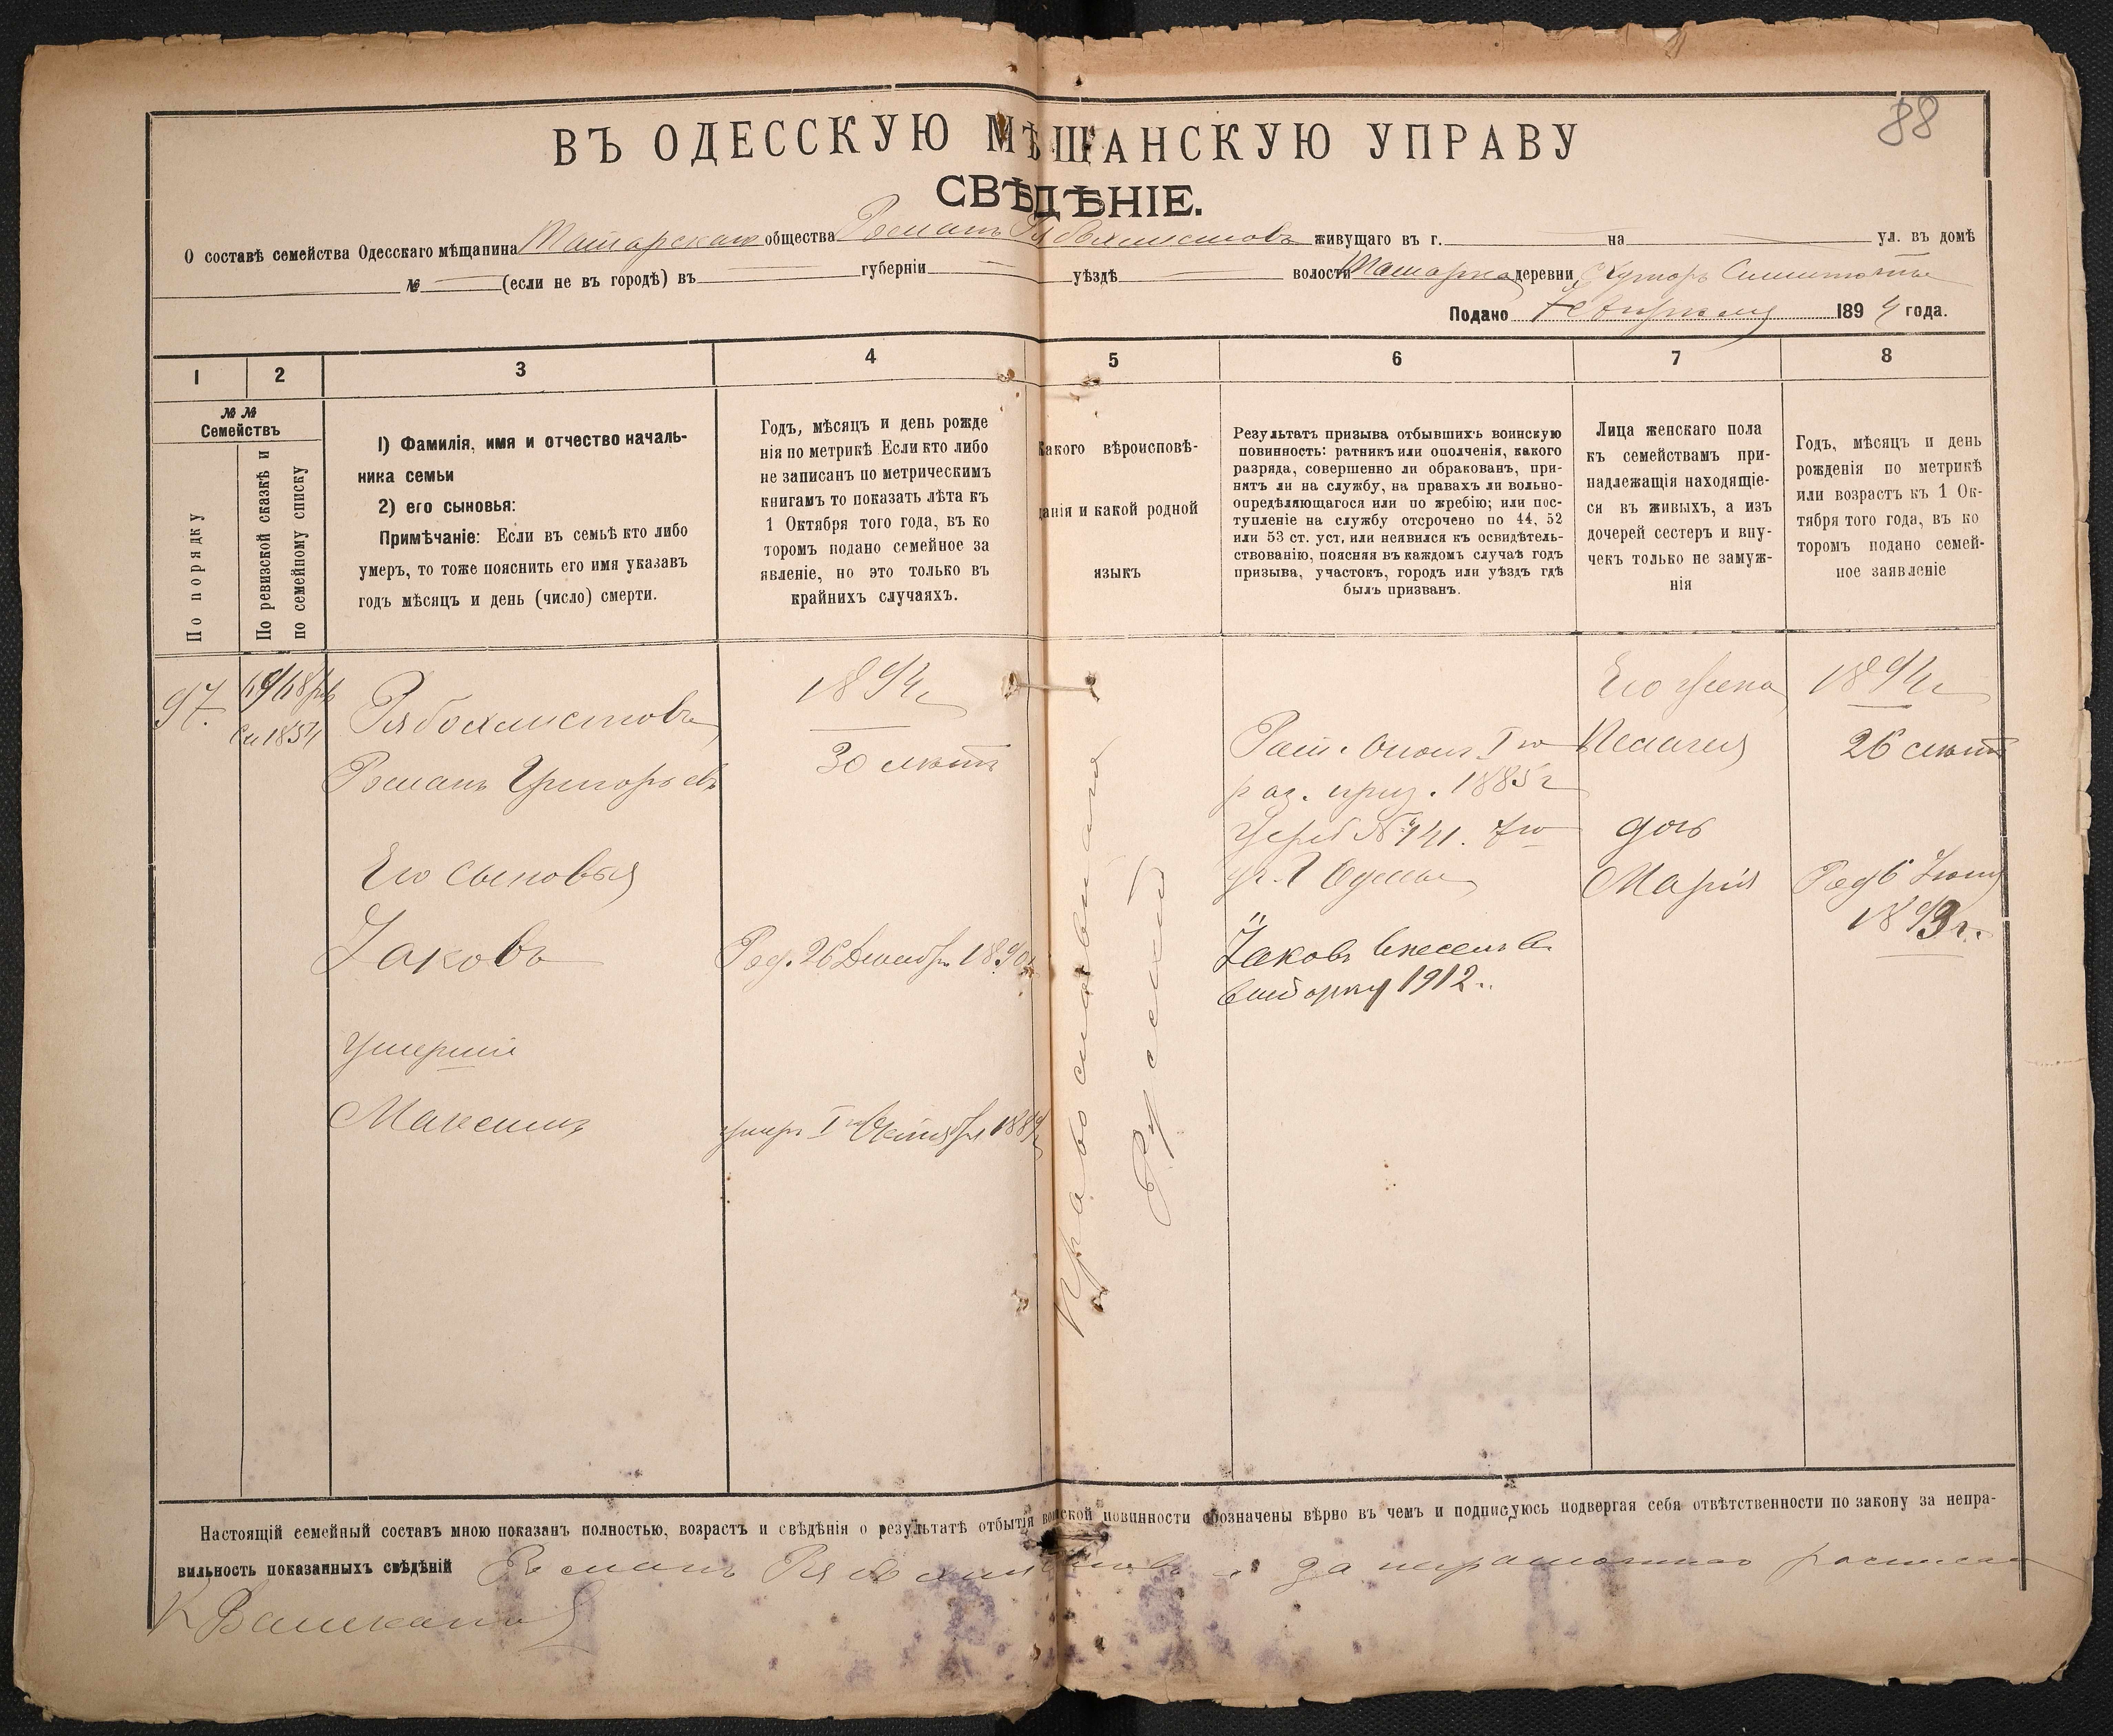 88
ВЪ ОДЕССКУЮ МѢЩАНСКУЮ УПРАВУ
СВѢДѢНІЕ.
О составѣ семейства Одесскаго мѣщанина Татарскаго общества Романъ Рябохлистовъ живущаго въ г. на ул. въ домѣ
№ (если не въ городѣ) въ губерніи уѣздѣ волости Татарка деревни Хуторъ
Подано 7 Апрѣля 1894 года.
1 2 3 4 5 6 7 8
№ № Семействъ
По порядку
По ревизской сказкѣ и
по семейному списку
1) Фамилія, имя и отчество началь-
ника семьи
2) его сыновья:
Примѣчаніе: Если въ семьѣ кто либо
умеръ, то тоже пояснить его имя указавъ
годъ мѣсяцъ и день (число) смерти.
Годъ, мѣсяцъ и день рожде
нія по метрикѣ Если кто либо
не записанъ по метрическимъ
книгамъ то показать лѣта къ
1 Октября того года, въ ко
торомъ подано семейное за
явленіе, но это только въ
крайнихъ случаяхъ.
Какого вѣроисповѣ-
данія и какой родной
языкъ
Результатъ призыва отбывшихъ воинскую
повинность: ратникъ или ополченія, какого
разряда, совершенно ли обракованъ, при-
нятъ ли на службу, на правахъ ли вольно-
опредѣляющагося или по жребію; или пос-
тупленіе на службу отсрочено по 44, 52
или 53 ст. уст, или неявился къ освидѣтель-
ствованію, поясняя въ каждомъ случаѣ годъ
призыва, участокъ, городъ или уѣздъ гдѣ
былъ призванъ.
Лица женскаго пола
къ семействамъ при-
надлежащія находящіе-
ся въ живыхъ, а изъ
дочерей сестеръ и вну-
чекъ только не замуж-
нія
Годъ, мѣсяцъ и день
рожденія по метрикѣ
или возрастъ къ 1 Ок-
тября того года, въ ко
торомъ подано семей-
ное заявленіе
97.
Рябохлистовъ
Романъ Григорьевъ
Его сыновья
Іаковъ
умершій
Максимъ
1894 г
30 лѣтъ
Род. 26 Декабр. 1890 г
умеръ 1го Октября 1889 г
Православнаго
Русскій
Рат. Опол. I го
раз. приз. 1885 г
Жереб № 141. 7го
уч. г Одессы
Іаковъ внесенъ въ
выборку 1912..
Его жена
Пелагея
дочь
Марія
1894 г
26 лѣтъ
Род 6 Іюня
1893 г.
Настоящій семейный составъ мною показанъ полностью, возрастъ и свѣдѣнія о результатѣ отбытія воинской повинности обозначены вѣрно въ чемъ и подписуюсь подвергая себя отвѣтственности по закону за непра-
вильность показанныхъ свѣдѣній Романъ Рябохлистовъ а за неграмотнаго росписал